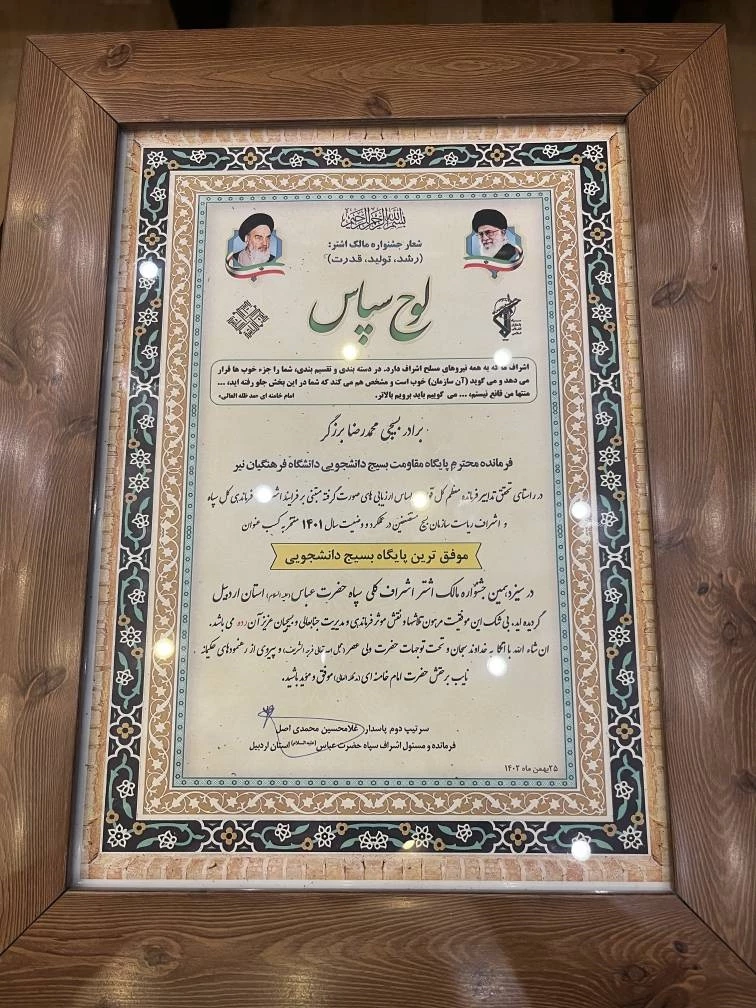 بسم الله الرحمن الرحیم
شعار جشنواره مالک اشتر:
(رشد، تولید، قدرت)
لوح سپاس
اشراف ها که به همه نیروهای مسلح اشراف دارد، در دسته بندی و تقسیم بندی، شما را جزء خوب ها قرار
می دهد و می گوید (آن سازمان) خوب است و مشخص هم می کند که شما در این بخش جلو رفته اید، ...
منتها من قانع نیستم، ... می گوییم باید برویم بالاتر.
امام خامنه ای «مد ظله العالی»
برادر بسیجی محمدرضا برزگر
فرمانده محترم پایگاه مقاومت بسیج دانشجویی دانشگاه فرهنگیان نیر
در راستای تحقق تدابیر فرمانده معظم کل قوا اساس ارزیابی های صورت گرفته مبتنی بر فرایند فرماندهی کل سپاه
و اشراف ریاست سازمان بسیج مستضعفین در عملکرد و وضعیت سال ۱۴۰۱ مفتخر به کسب عنوان
موفق ترین پایگاه بسیج دانشجویی
در سیزدهمین جشنواره مالک اشتر اشراف کلی سپاه حضرت عباس (علیه السلام) استان اردبیل
گردیده اید، بی شک این موفقیت مرهون تلاشها و نقش موثر فرماندهی و مدیریت جنابعالی و بسیجیان عزیز آن رده می باشد.
ان شاء الله با اتکا به خداوند سبحان و تحت توجهات حضرت ولی عصر (عجل الله تعالی فرجه الشریف) و پیروی از رهنمودهای حکیمانه
نایب برحقش حضرت امام خامنه ای (مدظله العالی) موفق و موید باشید.
سرتیپ دوم پاسدار غلامحسین محمدی اصل
فرمانده و مسئول اشراف سپاه حضرت عباس (علیه السلام) استان اردبیل
۲۵بهمن ماه ۱۴۰۲